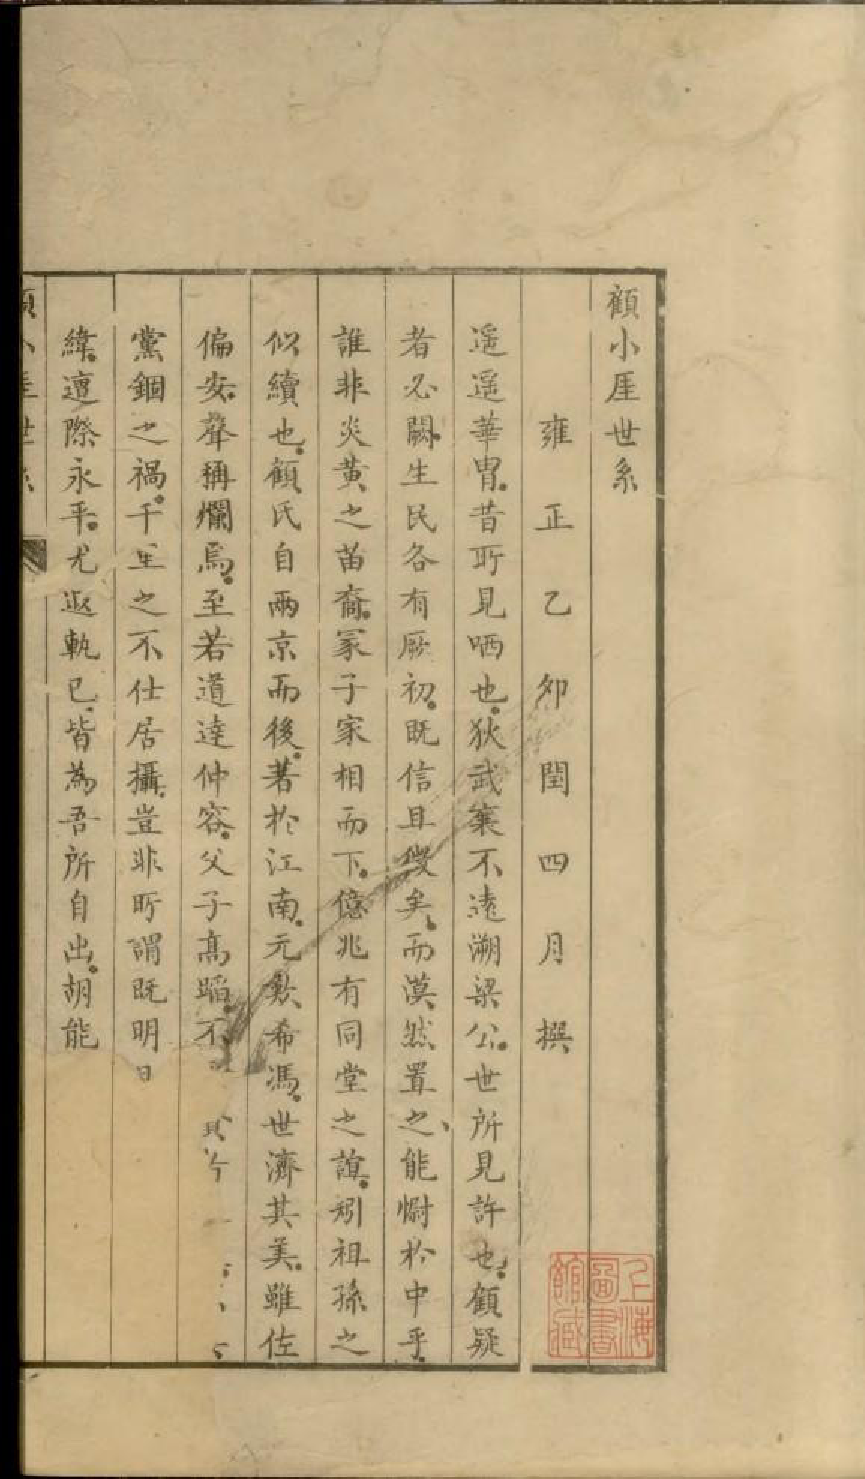 顧小厓世系
雍正乙卯閏四月撰
遥遥華冑。昔所見哂也。狄武襄不遠溯梁公。世所見許也。顧疑
者必闕。生民各有厥初。既信且徵矣。而漠然置之、能慰於中乎。
誰非炎黃之苗裔。冢子家相而下。億兆有同堂之誼。矧祖孫之
似續也。顧氏自兩京而後。著於江南。元歎希馮。世濟其美。雖佐
偏安。聲稱爛焉。至若道達仲容。父子高蹈。不
黨錮之禍。千里之不仕居攝。豈非所謂既明
緯。遭際永平。尤遐軌已。皆為吾所自出。胡能
顧小厓世系
上海圖書館藏